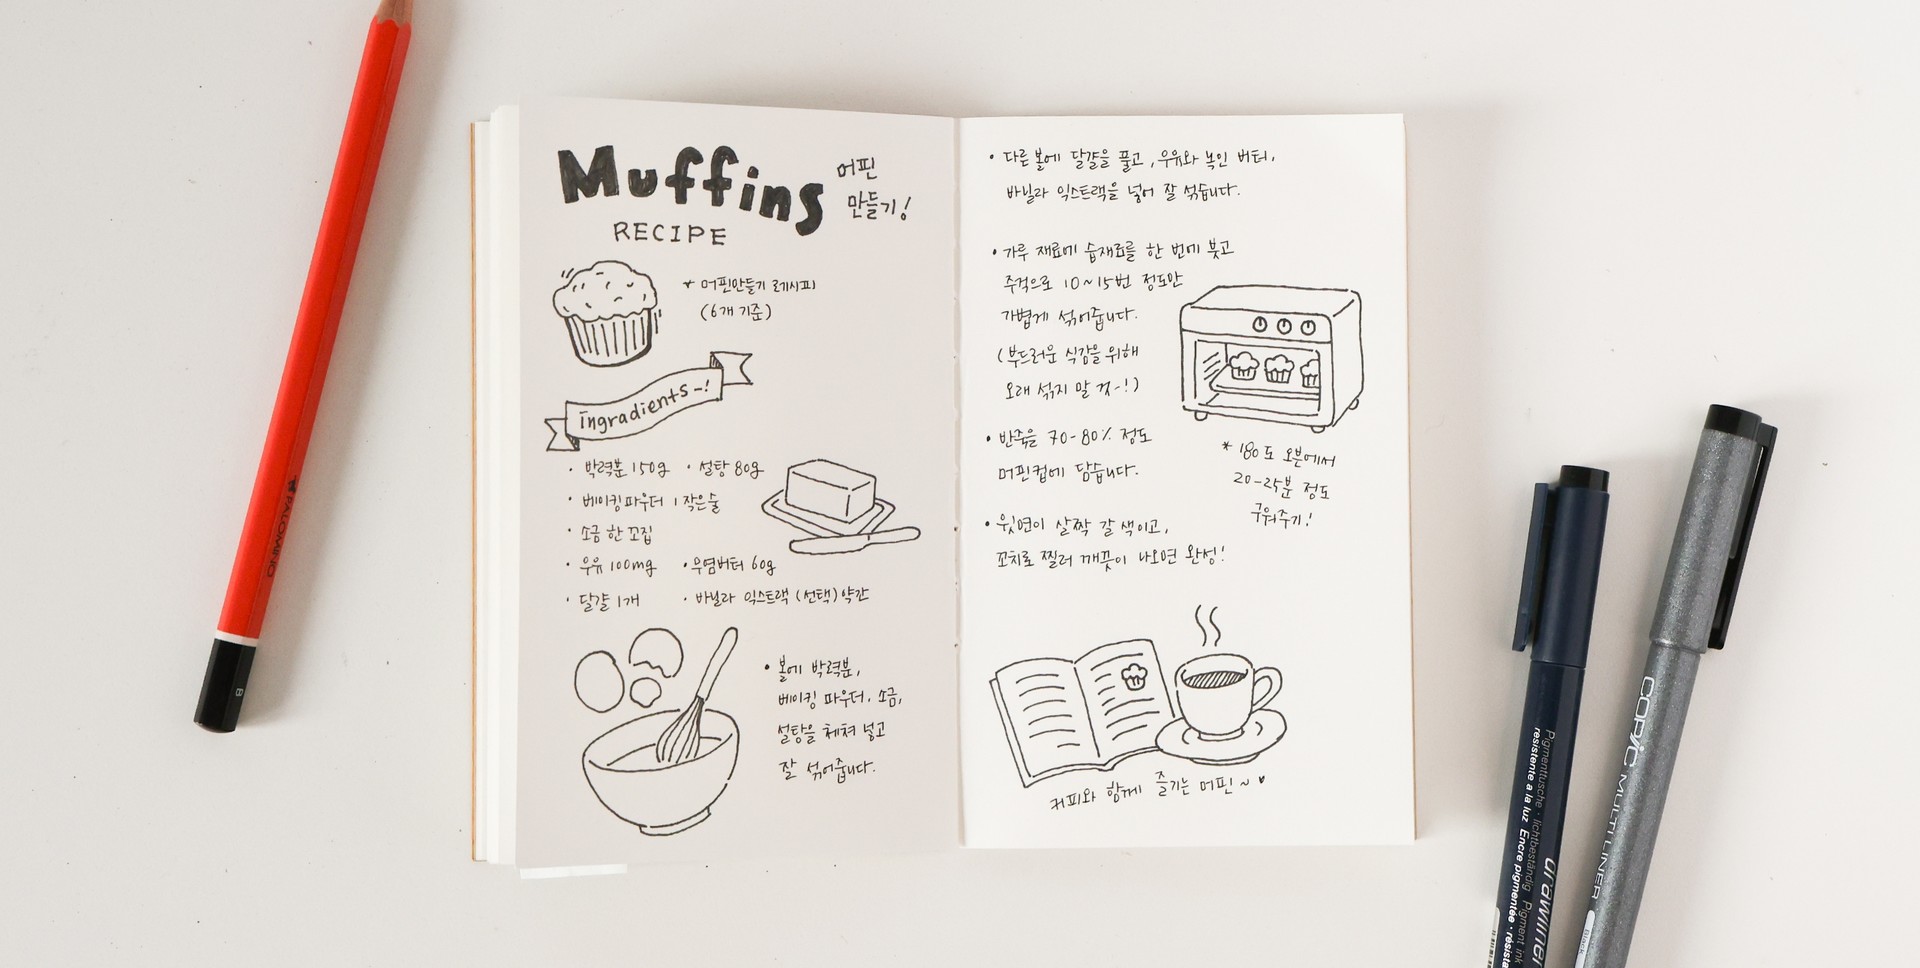 Muffins
RECIPE
머핀
만들기!
* 머핀만들기 레시피
(6개 기준)
ingradients~!
· 박력분 150g · 설탕 80g
· 베이킹파우더 1 작은술
· 소금 한 꼬집
· 우유 100mg · 무염버터 60g
· 달걀 1개 · 바닐라 익스트랙 (선택) 약간
• 볼에 박력분,
베이킹 파우더, 소금,
설탕을 체쳐 넣고
잘 섞어줍니다.
• 다른 볼에 달걀을 풀고, 우유와 녹인 버터,
바닐라 익스트랙을 넣어 잘 섞습니다.
• 가루 재료에 습재료를 한 번에 붓고
주걱으로 10~15번 정도만
가볍게 섞어줍니다.
(부드러운 식감을 위해
오래 섞지 말 것~!)
• 반죽을 70-80% 정도
머핀컵에 담습니다.
* 180도 오븐에서
20-25분 정도
구워주기!
• 윗면이 살짝 갈색이고,
꼬치로 찔러 깨끗이 나오면 완성!
커피와 함께 즐기는 머핀~♥
PALOMINO
B
Pigmenttusche · lichtbeständig Pigment ink
resistente a la luz Encre pigmentée · résista
drawliner
COPIC MULTI LINER
Black